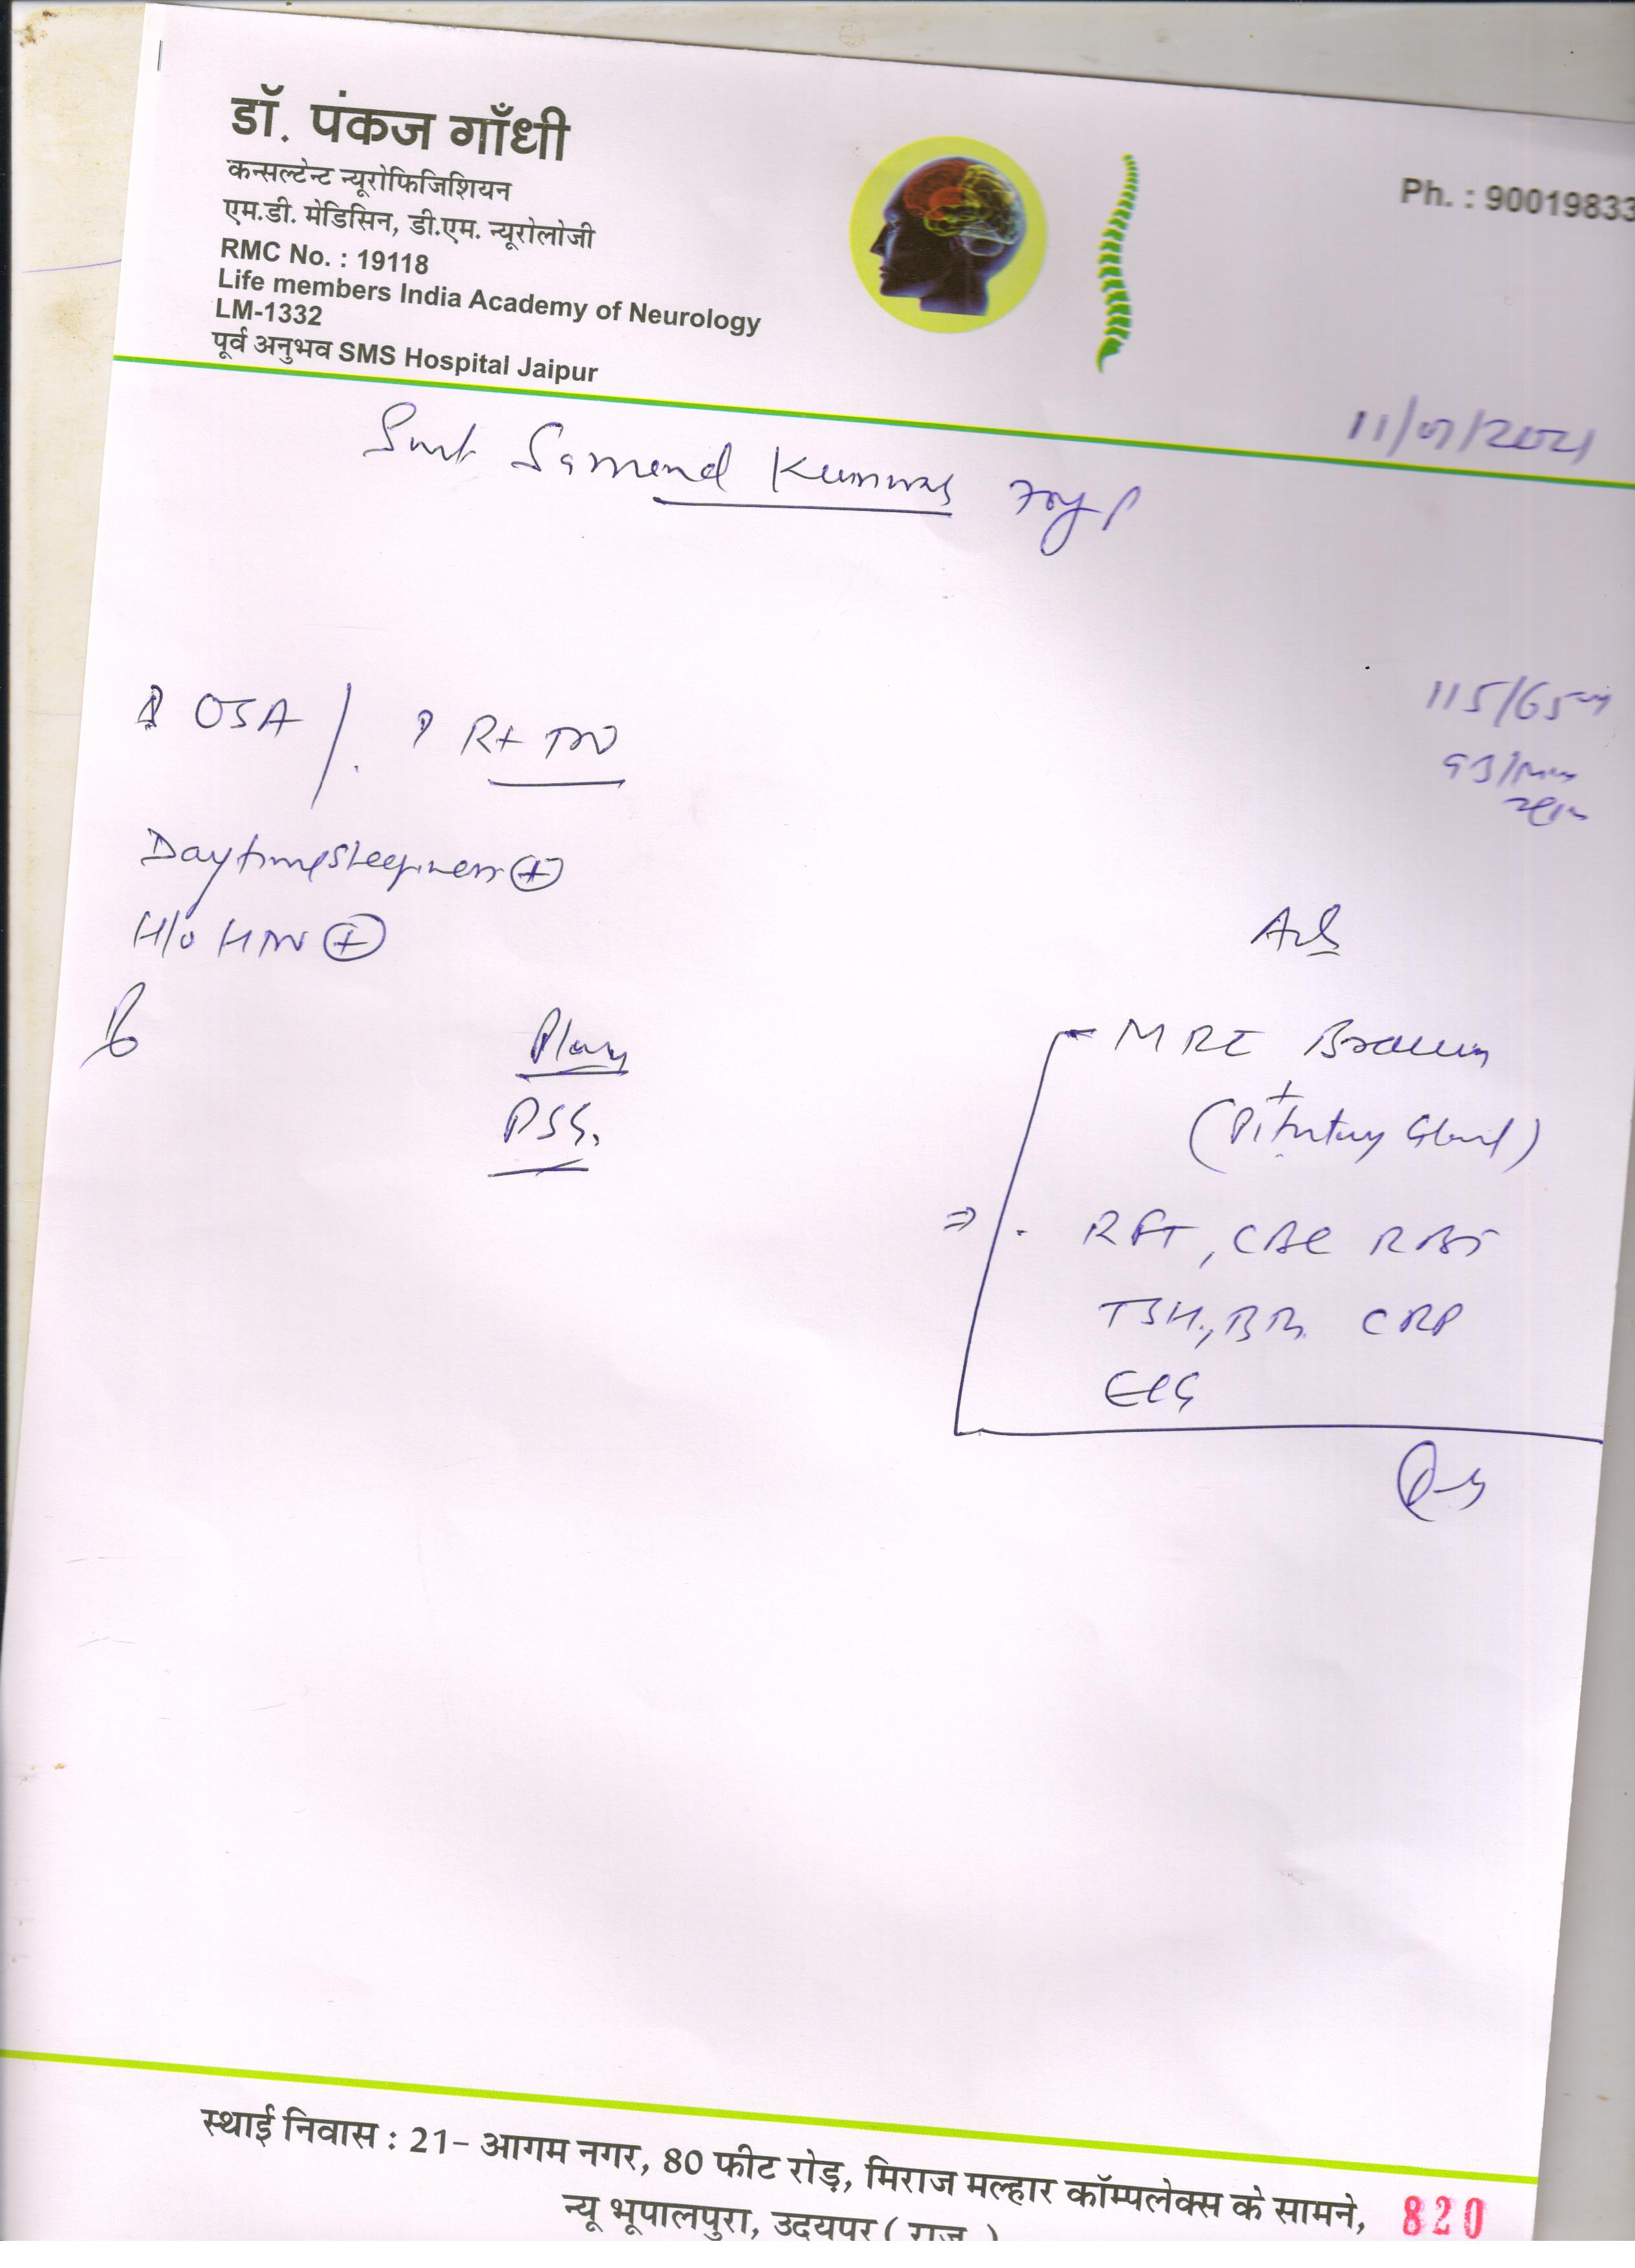 डॉ. पंकज गाँधी
कन्सल्टेन्ट न्यूरोफिजिशियन
एम.डी. मेडिसिन, डी.एम. न्यूरोलोजी
RMC No. : 19118
Life members India Academy of Neurology
LM-1332
पूर्व अनुभव SMS Hospital Jaipur
Ph. : 90019833
11/07/2021
Smt Samend Kunwar
115/65
93/min
? OSA / ? Rt TN
Daytime sleepiness (+)
H/o HTN (+)
Adv
Plan
PSG.
MRI Brain
+
(Pituitary Gland)
⇒ RFT, CBC RBS
TSH, CRP
ECG
स्थाई निवास : 21- आगम नगर, 80 फीट रोड़, मिराज मल्हार कॉम्पलेक्स के सामने,
न्यू भूपालपुरा, उदयपुर ( राज. )
820